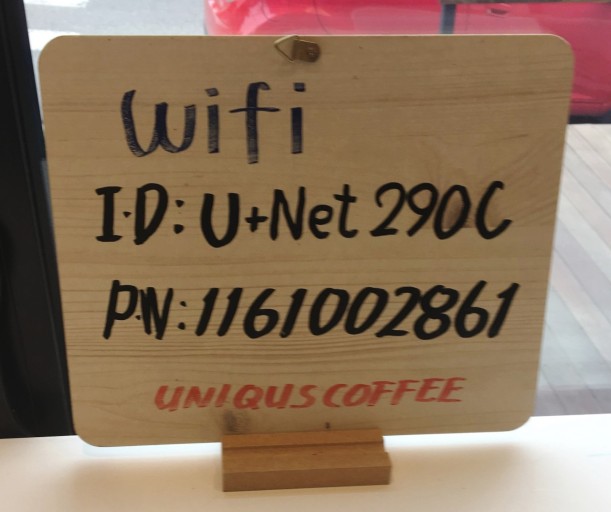 wifi
I·D: U+Net 290C
P.W: 1161002861
UNIQUS COFFEE